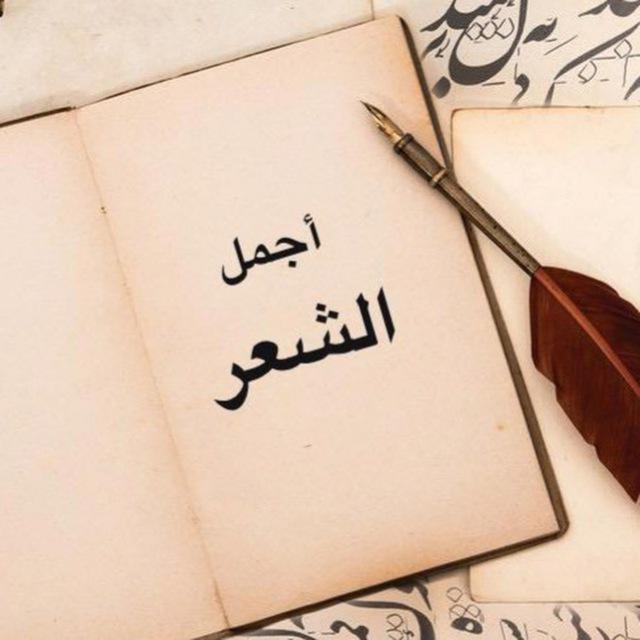 أجمل
الشعر